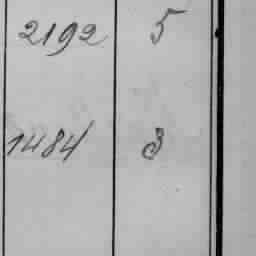 2192 5
1484 3